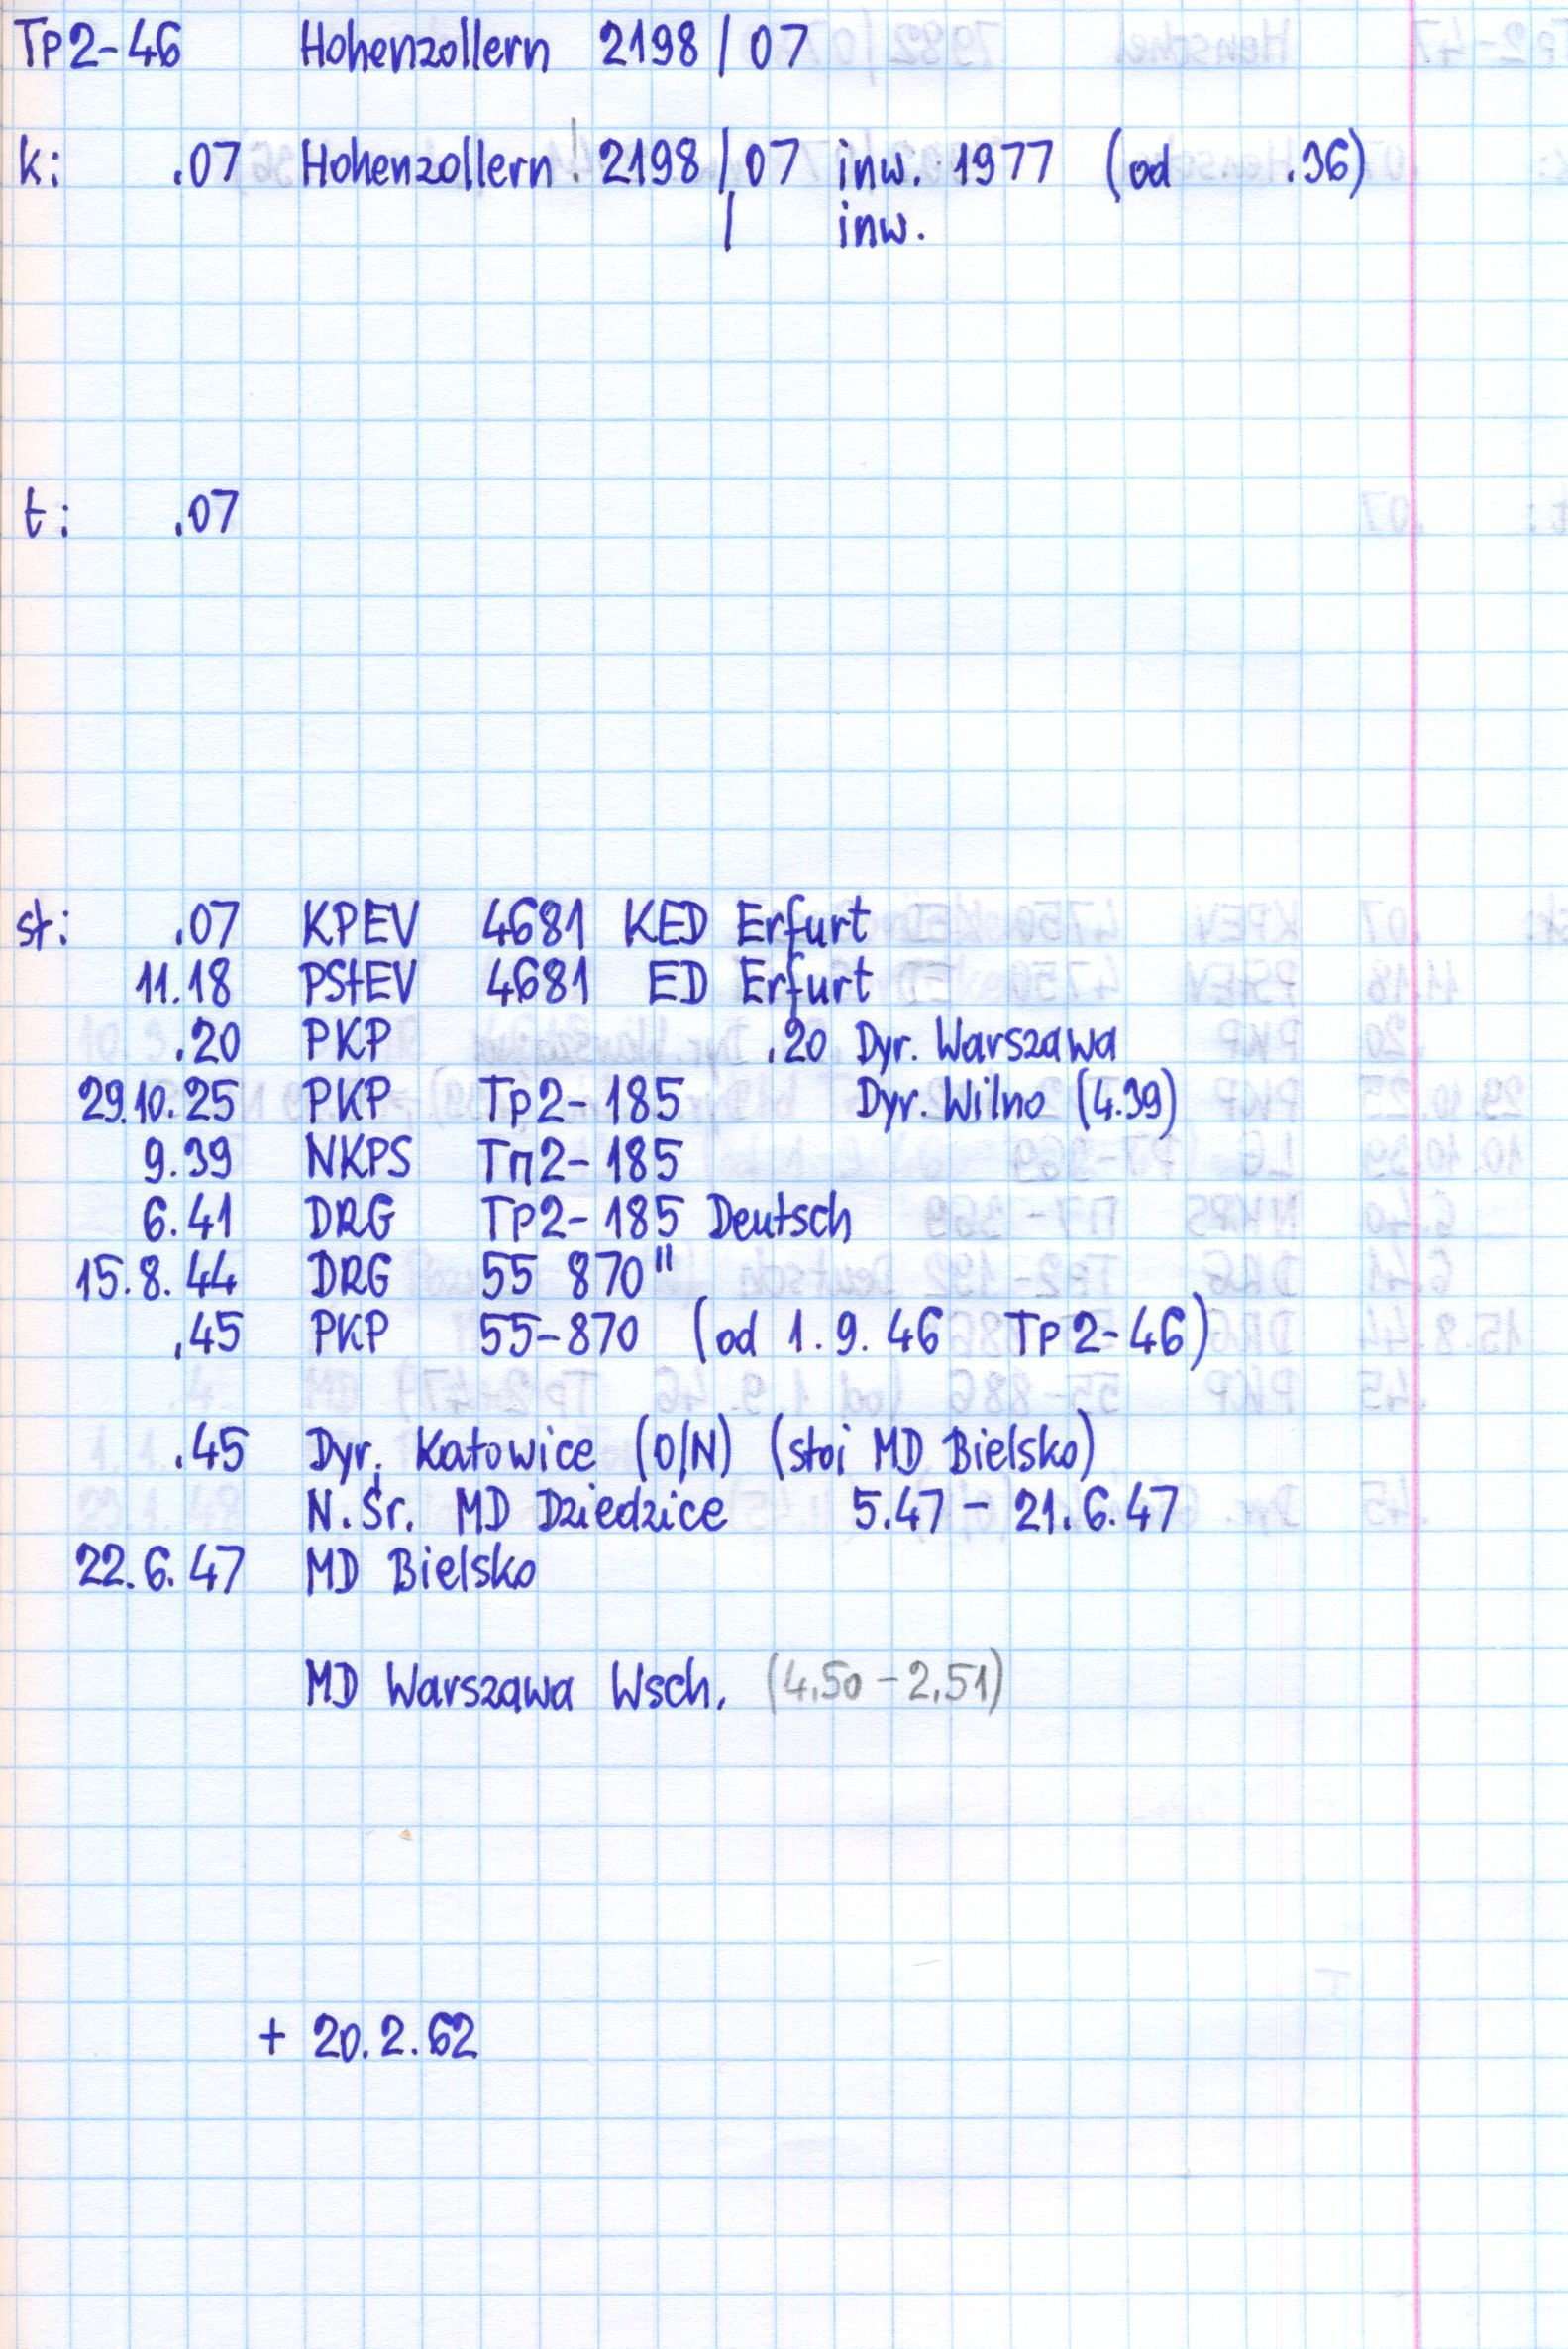 Tp2-46 Hohenzollern 2198/07
k: .07 Hohenzollern! 2198/07 inw. 1977 (od .36)
/ inw.
t: .07
st: .07 KPEV 4681 KED Erfurt
11.18 PStEV 4681 ED Erfurt
.20 PKP .20 Dyr. Warszawa
29.10.25 PKP Tp2-185 Dyr. Wilno (4.39)
9.39 NKPS Тп2-185
6.41 DRG Tp2-185 Deutsch
15.8.44 DRG 55 870"
.45 PKP 55-870 (od 1.9.46 Tp2-46)
.45 Dyr. Katowice (O/N) (stoi MD Bielsko)
N.Śr. MD Dziedzice 5.47 - 21.6.47
22.6.47 MD Bielsko
MD Warszawa Wsch. (4.50-2.51)
+ 20.2.62